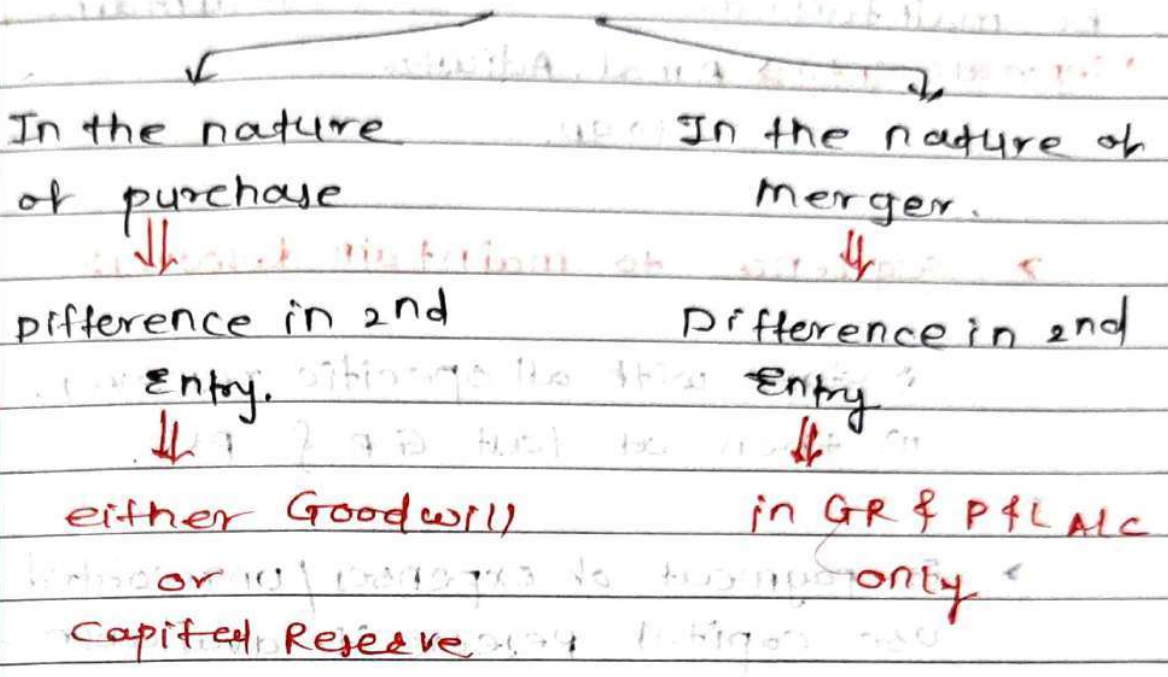 In the nature
of purchase
Difference in 2nd
Entry.
either Goodwill
or
Capital Reserve
In the nature of
merger.
Difference in 2nd
Entry
in GR & P&L A/c
only